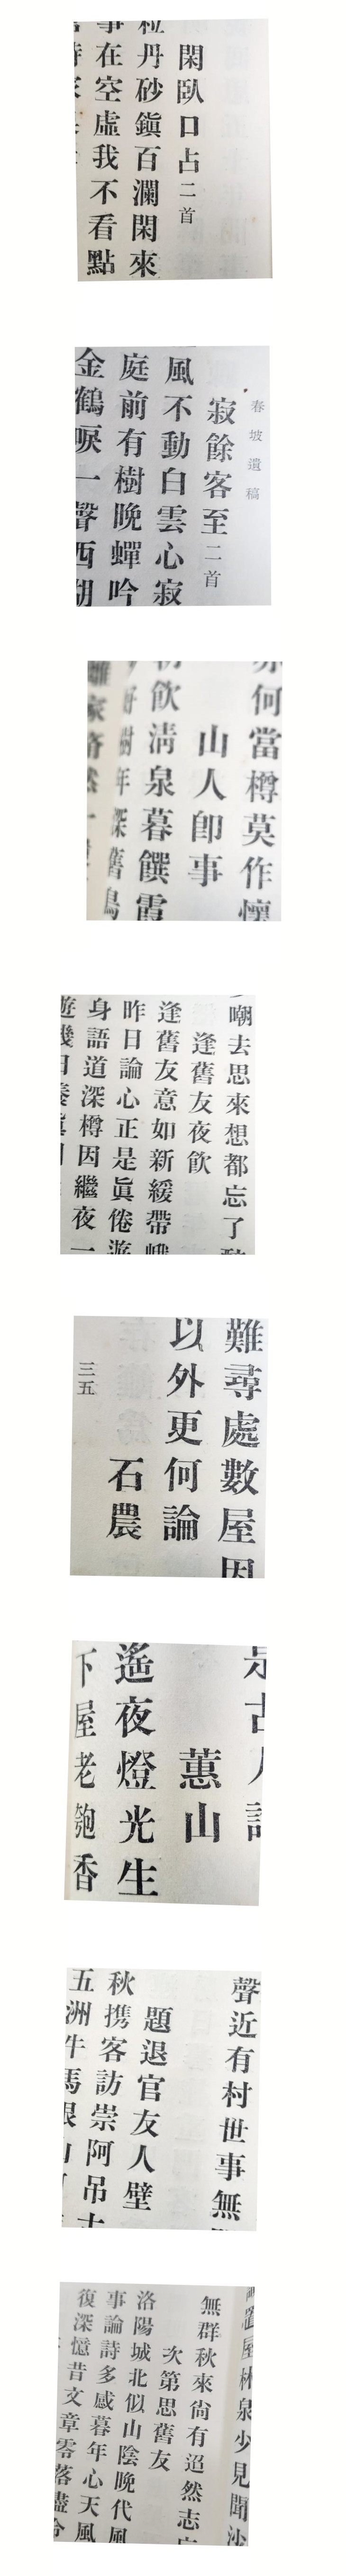 閑臥口占二首
粒丹砂鎭百瀾閑來
事在空虛我不看點
春坡遺稿
寂餘客至二首
風不動白雲心寂
庭前有樹晩蟬吟
金鶴唳一聲西湖
何當樽莫作懷
山人卽事
飮淸泉暮饌霞
樹年深舊鳥
嘲去思來想都忘了
逢舊友夜飮
逢舊友意如新緩帶
昨日論心正是眞倦遊
身語道深樽因繼夜一
遊幾日
難尋處數屋因
以外更何論
石農
三五
蕙山
遙夜燈光生
下屋老匏香
聲近有村世事無
題退官友人壁
秋携客訪崇阿吊古
五洲牛馬
屋林泉少見聞
無群秋來尙有迢然志
次第思舊友
洛陽城北似山陰晩代風
事論詩多感暮年心天風
復深憶昔文章零落盡今